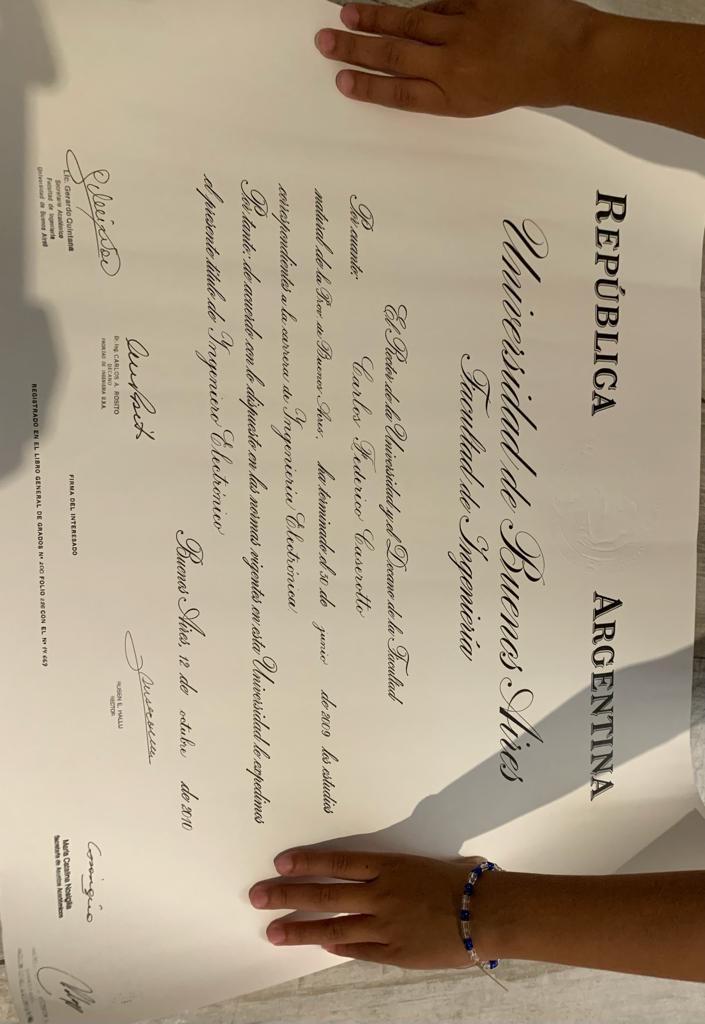 REPÚBLICA ARGENTINA
Universidad de Buenos Aires
Facultad de Ingeniería
El Rector de la Universidad y el Decano de la Facultad
Por cuanto: Carlos Federico Caserotto
natural de la Prov. de Buenos Aires, ha terminado el 30 de junio de 2009 los estudios
correspondientes a la carrera de Ingeniería Electrónica.
Por tanto; de acuerdo con lo dispuesto en las normas vigentes en esta Universidad le expedimos
el presente título de Ingeniero Electrónico
Buenos Aires, 12 de octubre de 2010
Lic. Gerardo Quintana
Secretario Académico
Facultad de Ingeniería
Universidad de Buenos Aires
Dr. Ing. CARLOS A. ROSITO
DECANO
FACULTAD DE INGENIERIA U.B.A.
FIRMA DEL INTERESADO
RUBEN E. HALLU
RECTOR
María Catalina Nosiglia
Secretaria de Asuntos Académicos
REGISTRADO EN EL LIBRO GENERAL DE GRADOS Nº FOLIO CON EL Nº